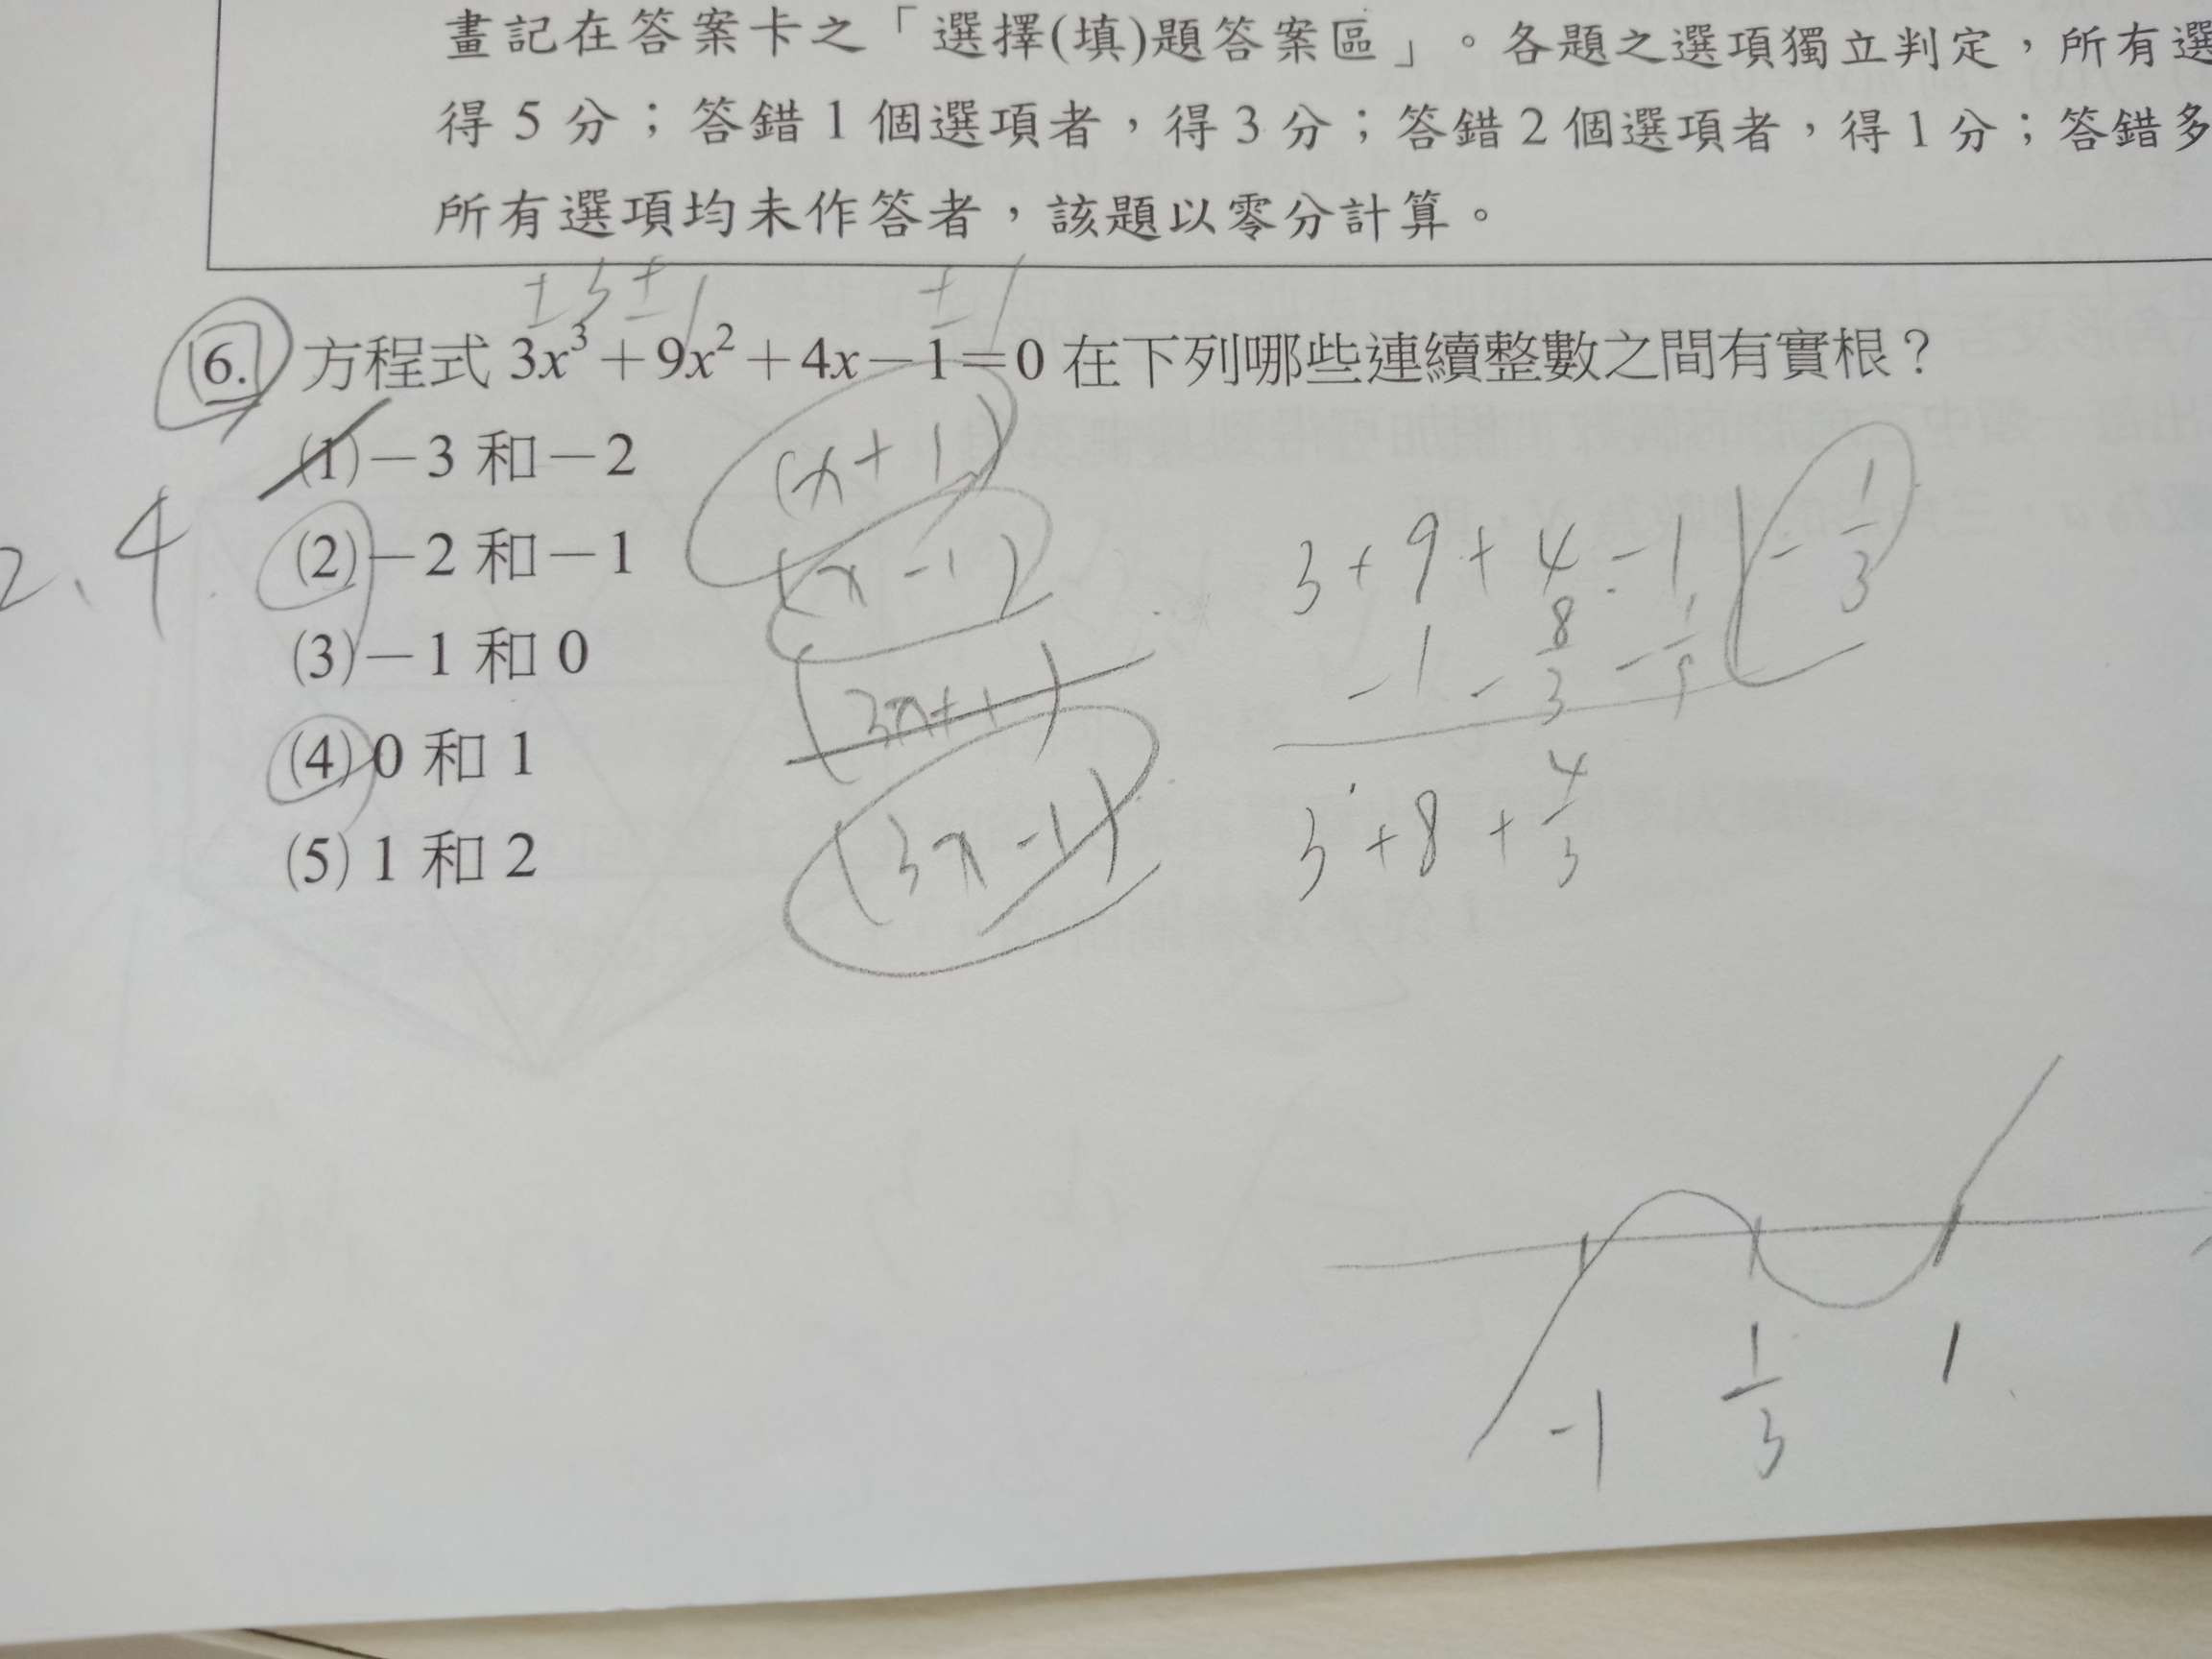 畫記在答案卡之「選擇(填)題答案區」。各題之選項獨立判定，所有選
得5分；答錯1個選項者，得3分；答錯2個選項者，得1分；答錯多
所有選項均未作答者，該題以零分計算。
±3 ±1 ±1
6. 方程式 3x³+9x²+4x−1=0 在下列哪些連續整數之間有實根？
(1)−3 和−2
(2)−2 和−1
(3)−1 和 0
(4) 0 和 1
(5) 1 和 2
2、4
(x+1)
(x-1)
(3x+1)
(3x-1)
3+9+4-1 -1/3
-1 -8/3
3+8+4/3
-1 1/3 1